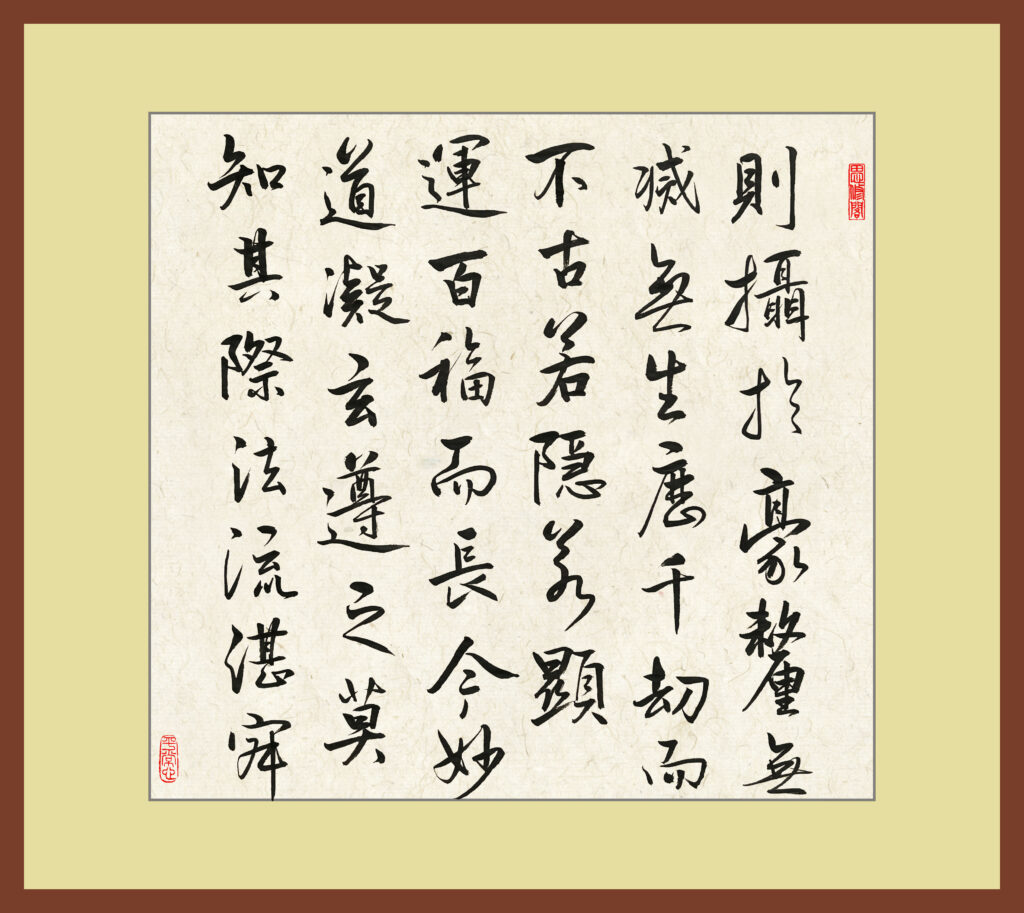 思修閣
則攝於豪釐無
滅無生歷千劫而
不古若隱若顯
運百福而長今妙
道凝玄遵之莫
知其際法流湛寂
平常心